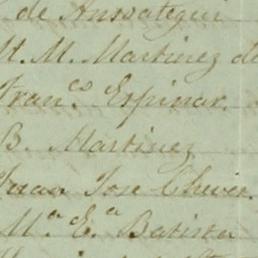 de Ansoategui
M. M. Martinez de
Fran.co Espinar.
B. Martinez
Juan Jose Chever.
M.a E.a Batista